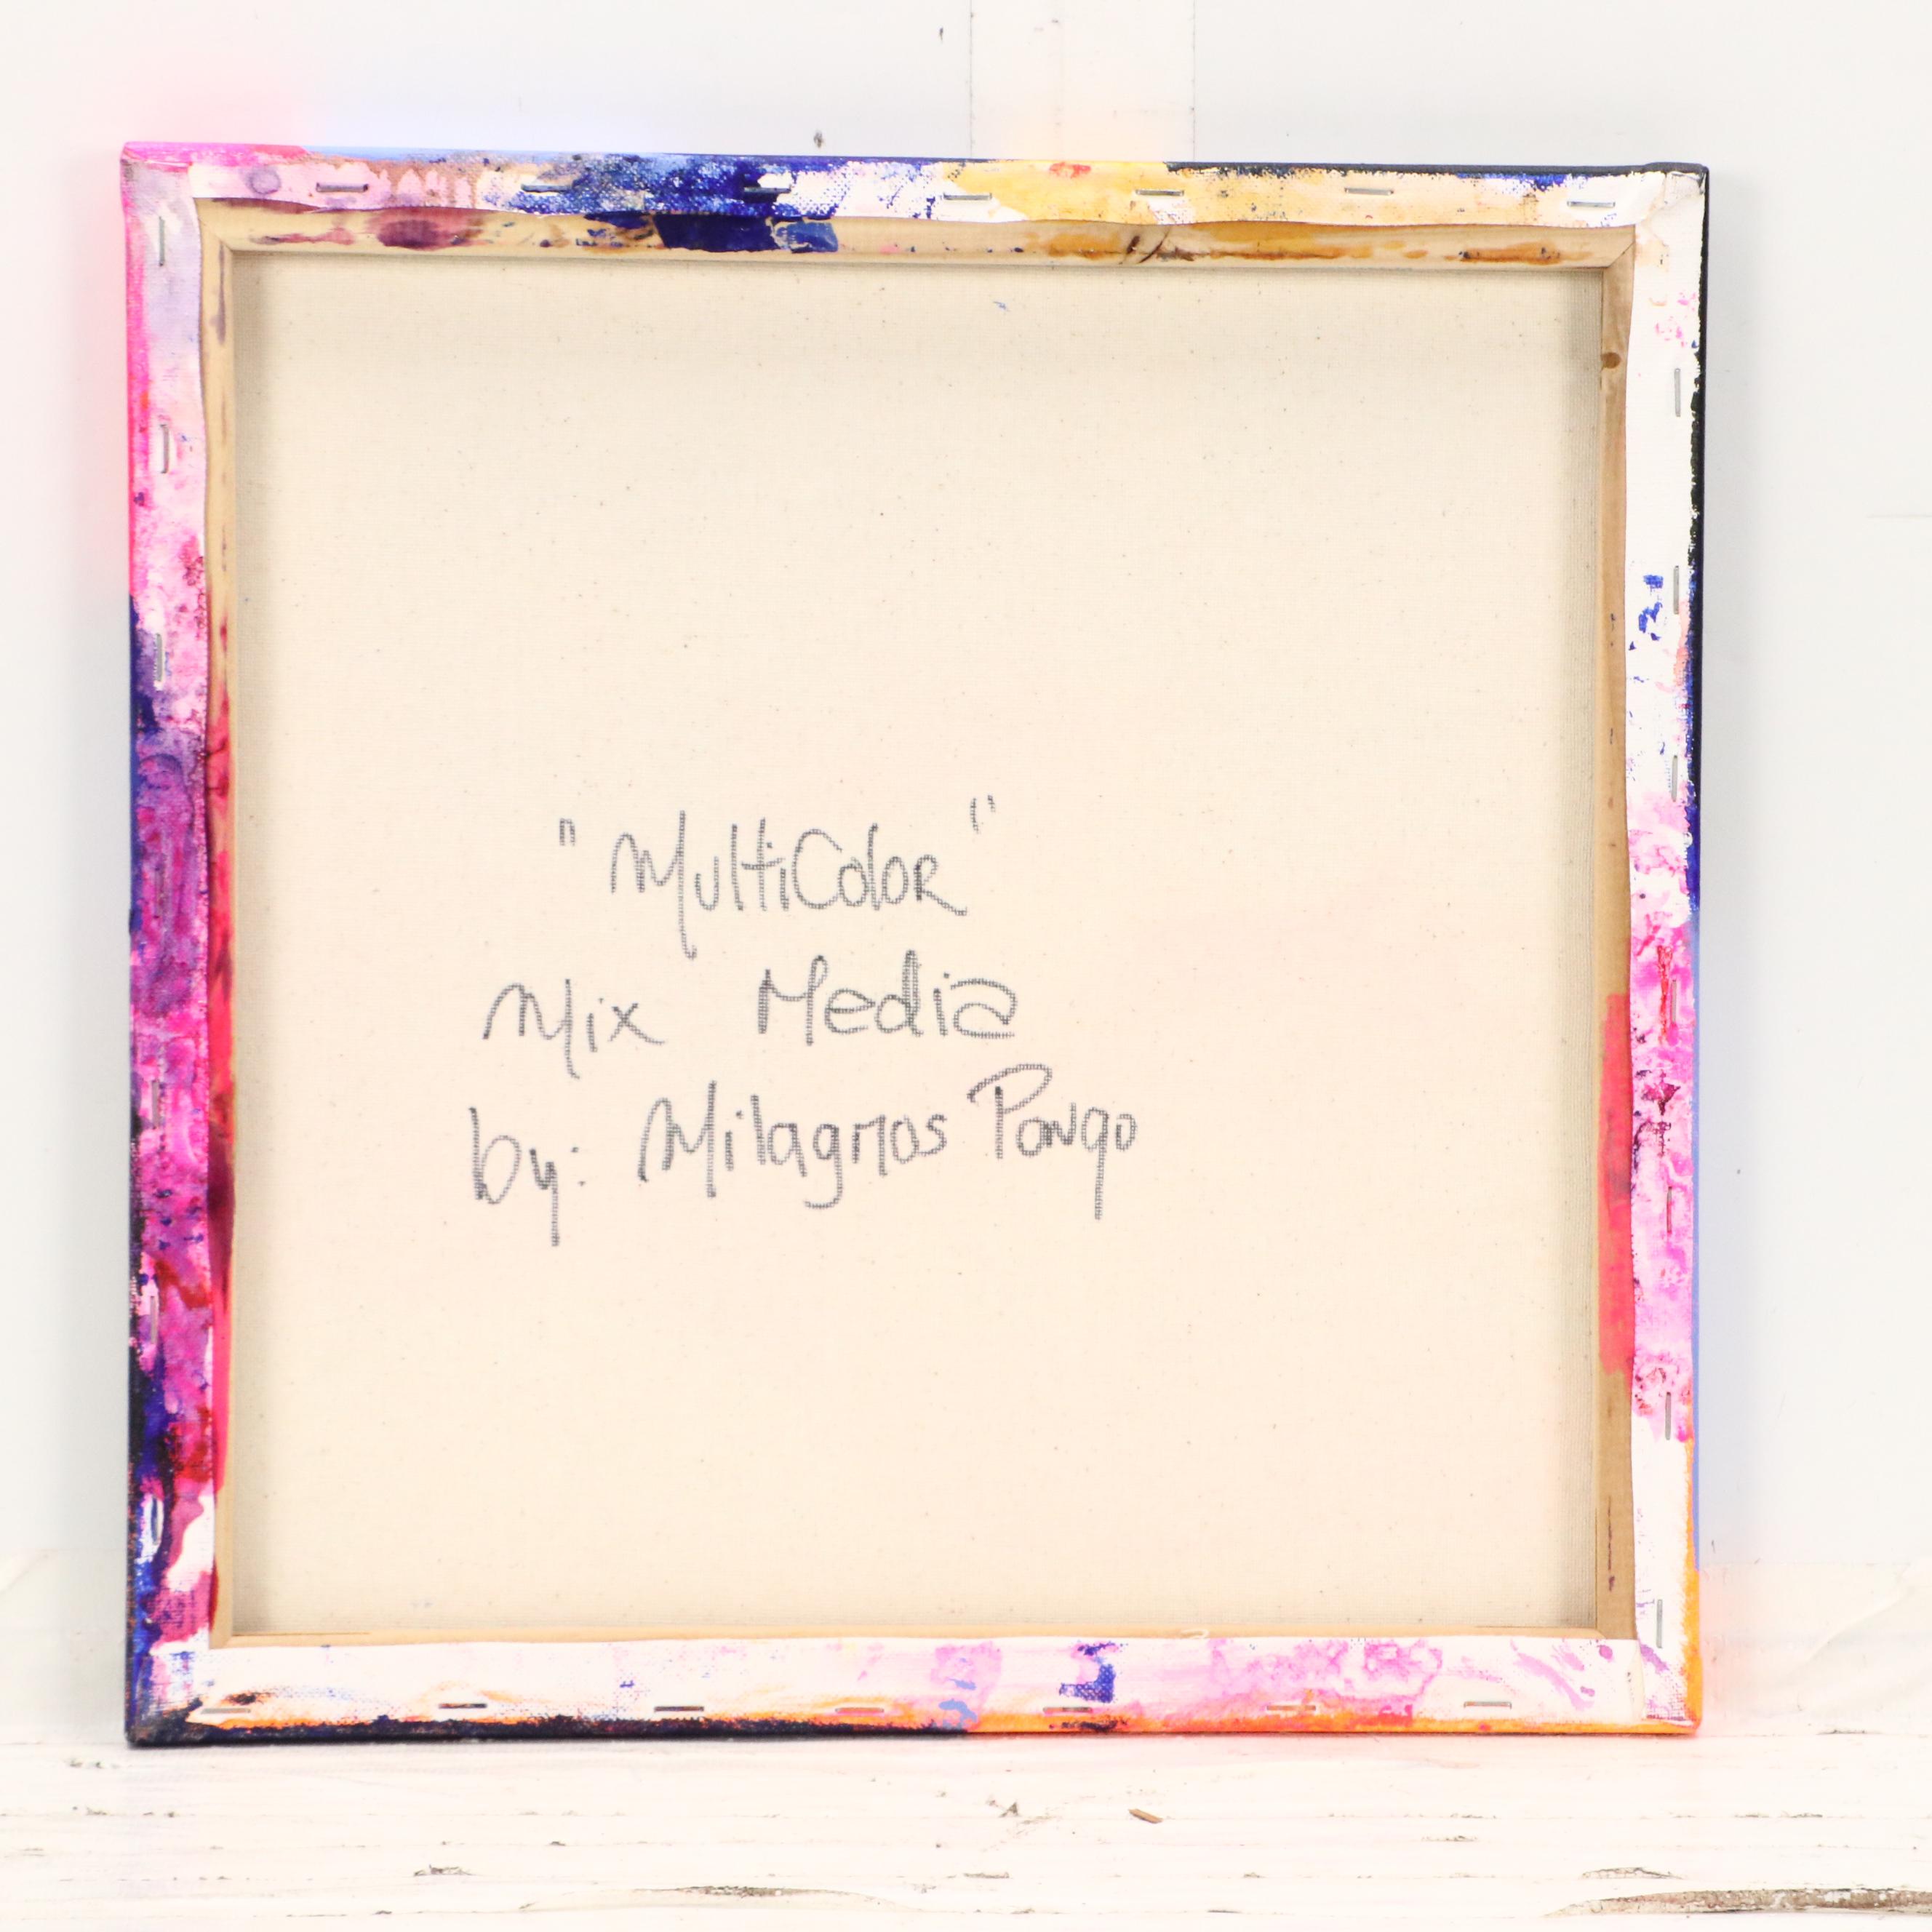 "MultiColor"
Mix Media
by: Milagros Pongo